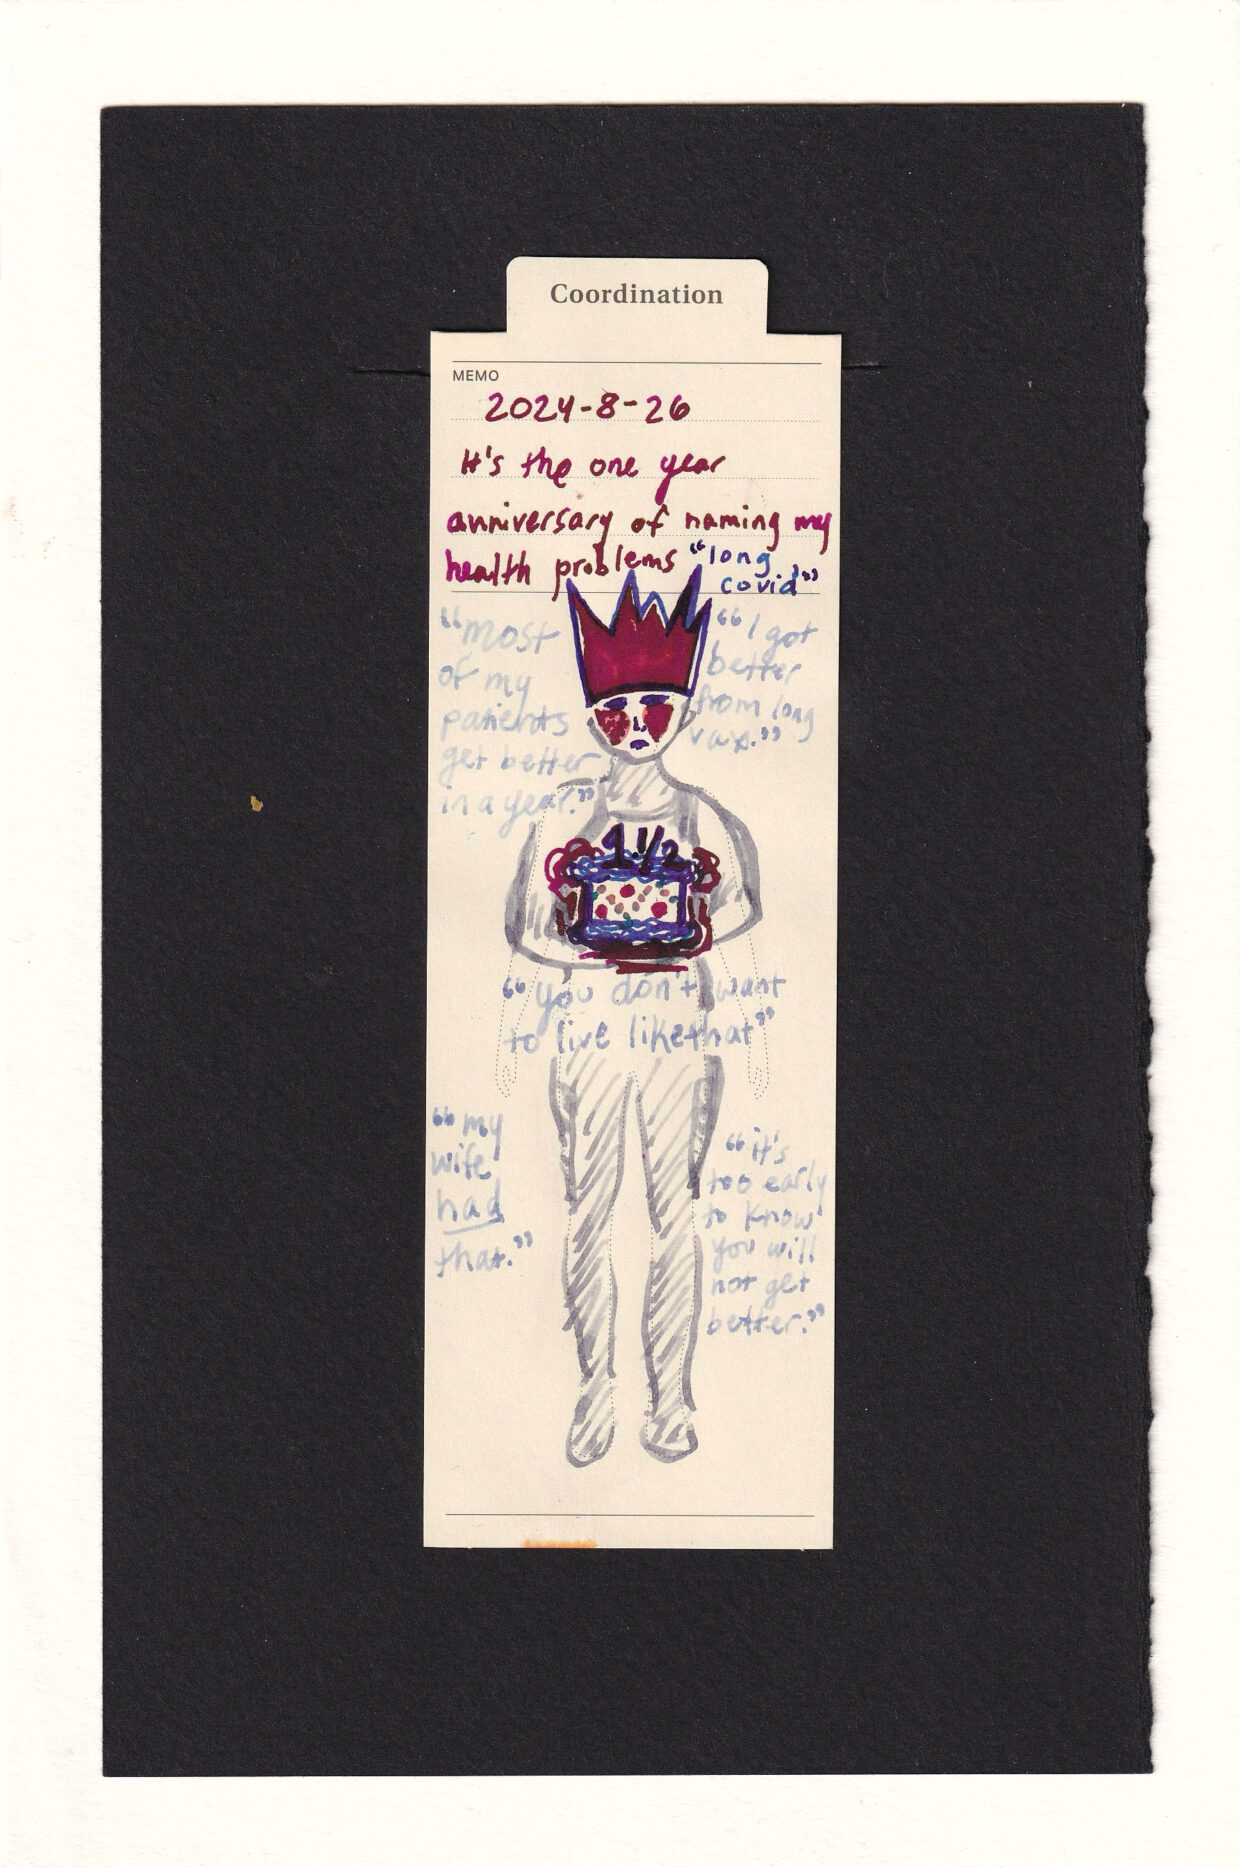 Coordination
MEMO
2024-8-26
It's the one year
anniversary of naming my
health problems "long
covid"
"most
of my
patients
get better
in a year."
"I got
better
from long
vax."
1 1/2
"you don't want
to live like that"
"my
wife
had
that."
"it's
too early
to know
you will
not get
better."